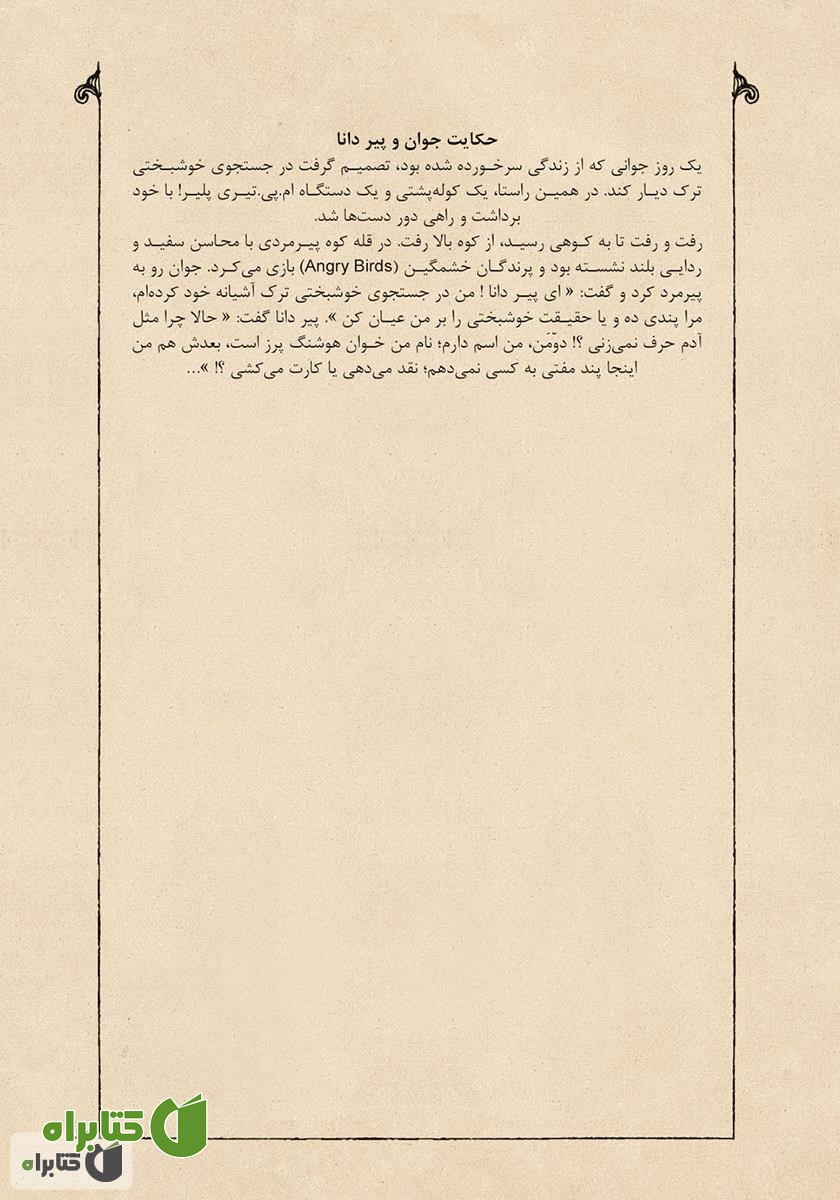 حکایت جوان و پیر دانا
یک روز جوانی که از زندگی سرخورده شده بود، تصمیم گرفت در جستجوی خوشبختی
ترک دیار کند. در همین راستا، یک کوله‌پشتی و یک دستگاه ام.پی.تیری پلیر! با خود
برداشت و راهی دور دست‌ها شد.
رفت و رفت تا به کوهی رسید، از کوه بالا رفت. در قله کوه پیرمردی با محاسن سفید و
ردایی بلند نشسته بود و پرندگان خشمگین (Angry Birds) بازی می‌کرد. جوان رو به
پیرمرد کرد و گفت: « ای پیر دانا ! من در جستجوی خوشبختی ترک آشیانه خود کرده‌ام،
مرا پندی ده و یا حقیقت خوشبختی را بر من عیان کن ». پیر دانا گفت: « حالا چرا مثل
آدم حرف نمی‌زنی ؟! دوّمَن، من اسم دارم؛ نام من خوان هوشنگ پرز است، بعدش هم من
اینجا پند مفتی به کسی نمی‌دهم؛ نقد می‌دهی یا کارت می‌کشی ؟! »...
کتابراه
کتابراه